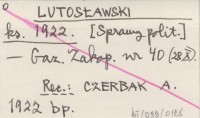 LUTOSŁAWSKI
ks. 1922. [Sprawy polit.]
— Gaz. Zakop. nr 40 (28 X).
Rec.: CZERBAK A.
1922 bp.